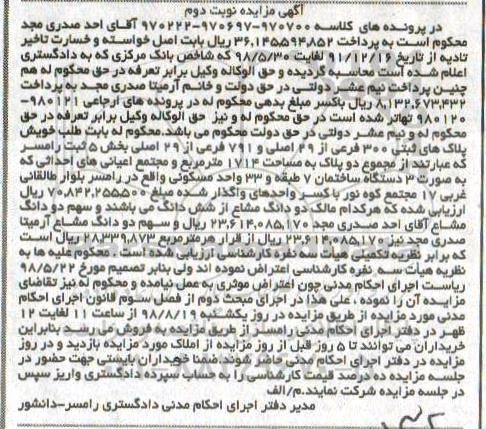 آگهی مزایده نوبت دوم
در پرونده های کلاسه ۹۷۰۷۰۰-۹۷۰۶۹۷-۹۷۰۲۲۲ آقای احد صدری مجد
محکوم است به پرداخت ۳۶,۱۴۵۵۹۴۸۵۲ ریال بابت اصل خواسته و خسارت تاخیر
تادیه از تاریخ ۹۱/۱۲/۱۶ لغایت ۹۸/۵/۳۰ که شاخص بانک مرکزی که به دادگستری
اعلام شده است محاسبه گردیده و حق الوکاله وکیل برابر تعرفه در حق محکوم له هم
چنین پرداخت نیم عشر دولتی در حق دولت و خانم آرمیتا صدری مجد به پرداخت
۸,۱۳۲,۶۷۳,۴۳۲ ریال باکسر مبلغ بدهی محکوم له در پرونده های ارجاعی ۹۸۰۱۲۱-
۹۸۰۱۲۰ تهاتر شده است در حق محکوم له و نیز حق الوکاله وکیل برابر تعرفه در حق
محکوم له و نیم عشر دولتی در حق دولت محکوم می باشد.محکوم له بابت طلب خویش
پلاک های ثبتی ۳۰۰ فرعی از ۲۹ اصلی و ۷۹۱ فرعی از ۲۹ اصلی بخش ۵ ثبت رامسر
که عبارتند از مجموع دو پلاک به مساحت ۱۷۱۴ مترمربع و مجتمع اعیانی های احداثی که
به صورت ۳ دستگاه ساختمان ۷ طبقه و ۳۳ واحد مسکونی واقع در رامسر بلوار طالقانی
غربی ۱۷ مجتمع کوه نور با کسر واحدهای واگذار شده مبلغ ۷۰,۸۴۲,۲۵۵,۵۰۰ ریال
ارزیابی شده که هرکدام مالک دو دانگ مشاع از شش دانگ می باشند و سهم دو دانگ
مشاع آقای احد صدری مجد ۲۳,۶۱۴,۰۸۵,۱۷۰ ریال و سهم دو دانگ مشاع آرمیتا
صدری مجد نیز ۲۳,۶۱۴,۰۸۵,۱۷۰ ریال از قرار هر مترمربع ۲۸,۳۳۹,۸۷۳ ریال است
که برابر نظریه تکمیلی هیأت سه نفره کارشناسی ارزیابی شده است . محکوم علیه ها به
نظریه هیأت سه نفره کارشناسی اعتراض نموده اند ولی بنابر تصمیم مورخ ۹۸/۵/۲۲
ریاست اجرای احکام مدنی چون اعتراض موثری به عمل نیامده و محکوم له نیز تقاضای
مزایده آن را نموده ، علی هذا در اجرای مبحث دوم از فصل سوم قانون اجرای احکام
مدنی مورد مزایده از طریق مزایده در روز یکشنبه ۹۸/۸/۱۹ از ساعت ۱۱ لغایت ۱۲
ظهر در دفتر اجرای احکام مدنی رامسر از طریق مزایده به فروش می رسد بنابراین
خریداران می توانند تا ۵ روز قبل از روز مزایده از املاک مورد مزایده بازدید و در روز
مزایده در دفتر اجرای احکام مدنی حاضر شوند.ضمنا خریداران بایستی جهت حضور در
جلسه مزایده ده درصد قیمت کارشناسی را به حساب سپرده دادگستری واریز سپس
در جلسه مزایده شرکت نمایند.م/الف
مدیر دفتر اجرای احکام مدنی دادگستری رامسر-دانشور